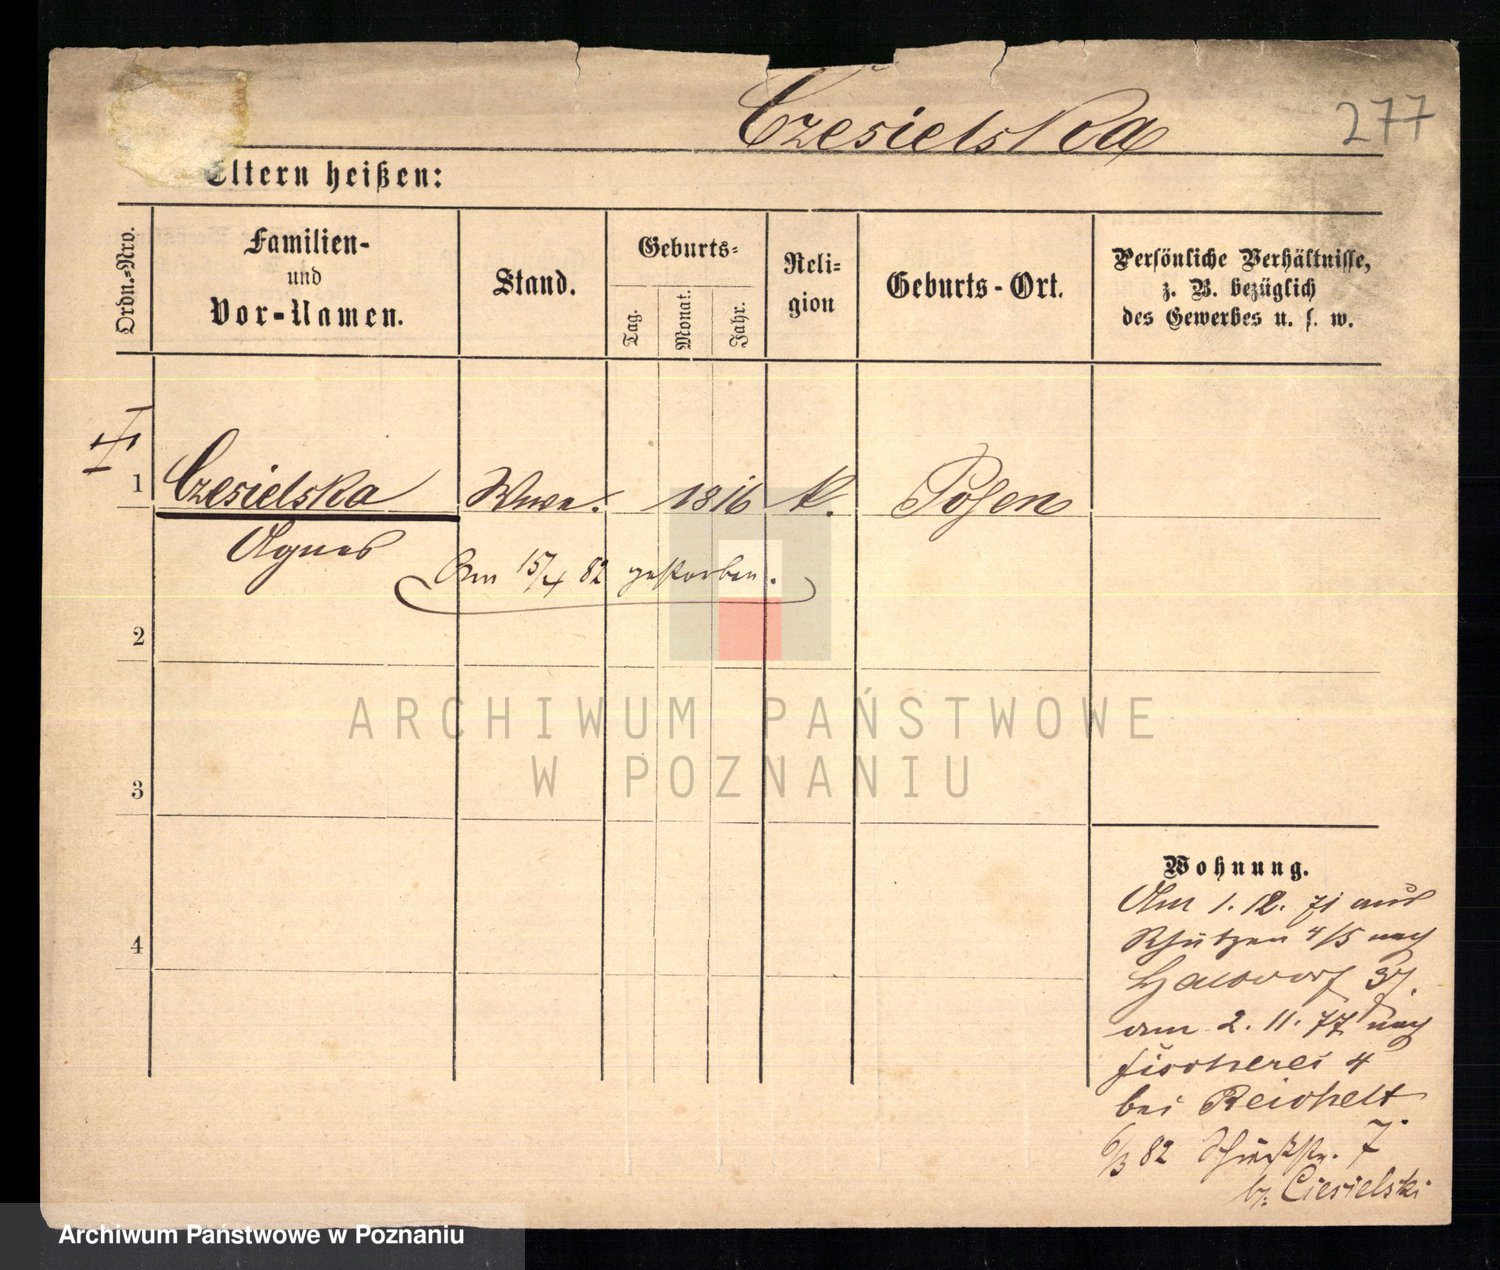 Czesielska
277
Eltern heißen:
Ordn.-Nro.
Familien-
und
Vor-Namen.
Stand.
Geburts-
Tag.
Monat.
Jahr.
Reli-
gion
Geburts-Ort.
Persönliche Verhältnisse,
z. B. bezüglich
des Gewerbes u. s. w.
1 Czesielska Wwe. 1816 k. Posen
Agnes
Am 15/4 82 gestorben.
2
ARCHIWUM PAŃSTWOWE
W POZNANIU
3
4
Wohnung.
Am 1. 12. 71 aus
Schützen 4/5 nach
Halbdorf 37.
am 2. 11. 77 nach
Fischerei 4
bei Reichelt
6/3 82 Schützstr. 7.
b. Ciesielski
Archiwum Państwowe w Poznaniu